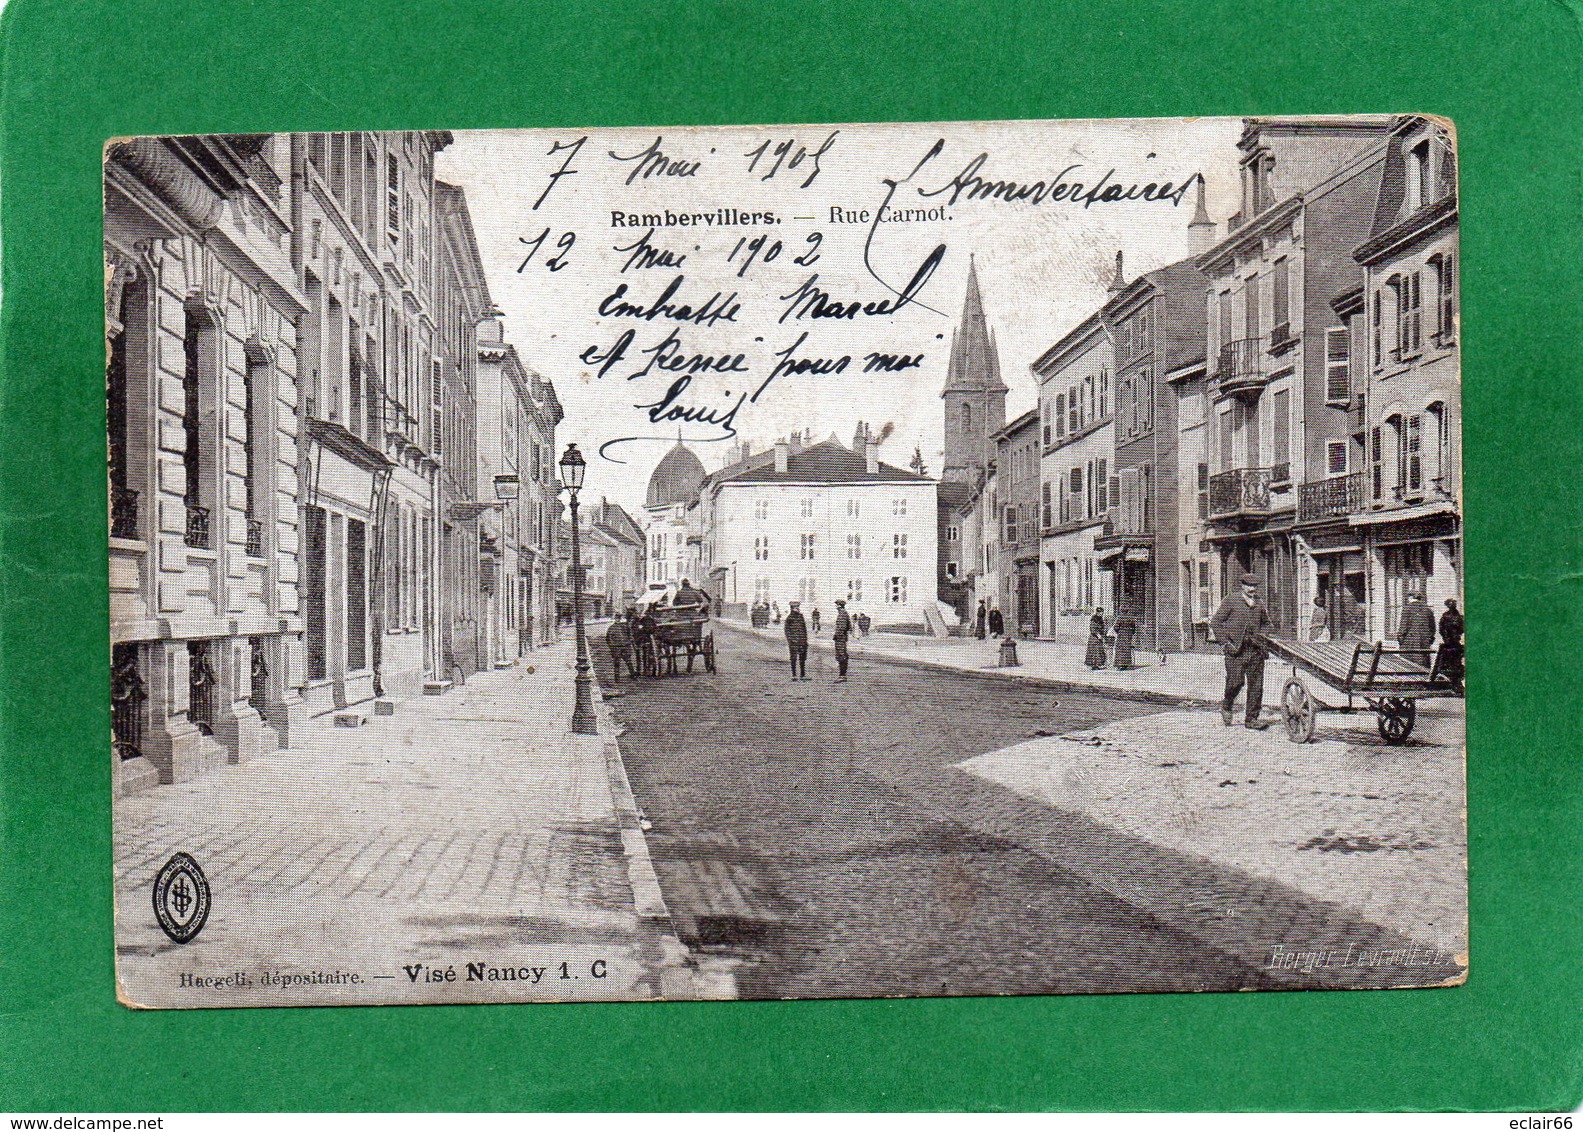 7 Mai 1905 Anniversaires
Rambervillers. — Rue Carnot.
12 Mai 1902
Embrasse Marcel
et Renée pour moi
Louis
Haegeli, dépositaire. — Visé Nancy 1. C
Berger-Levrault
delcampe.net
eclair66